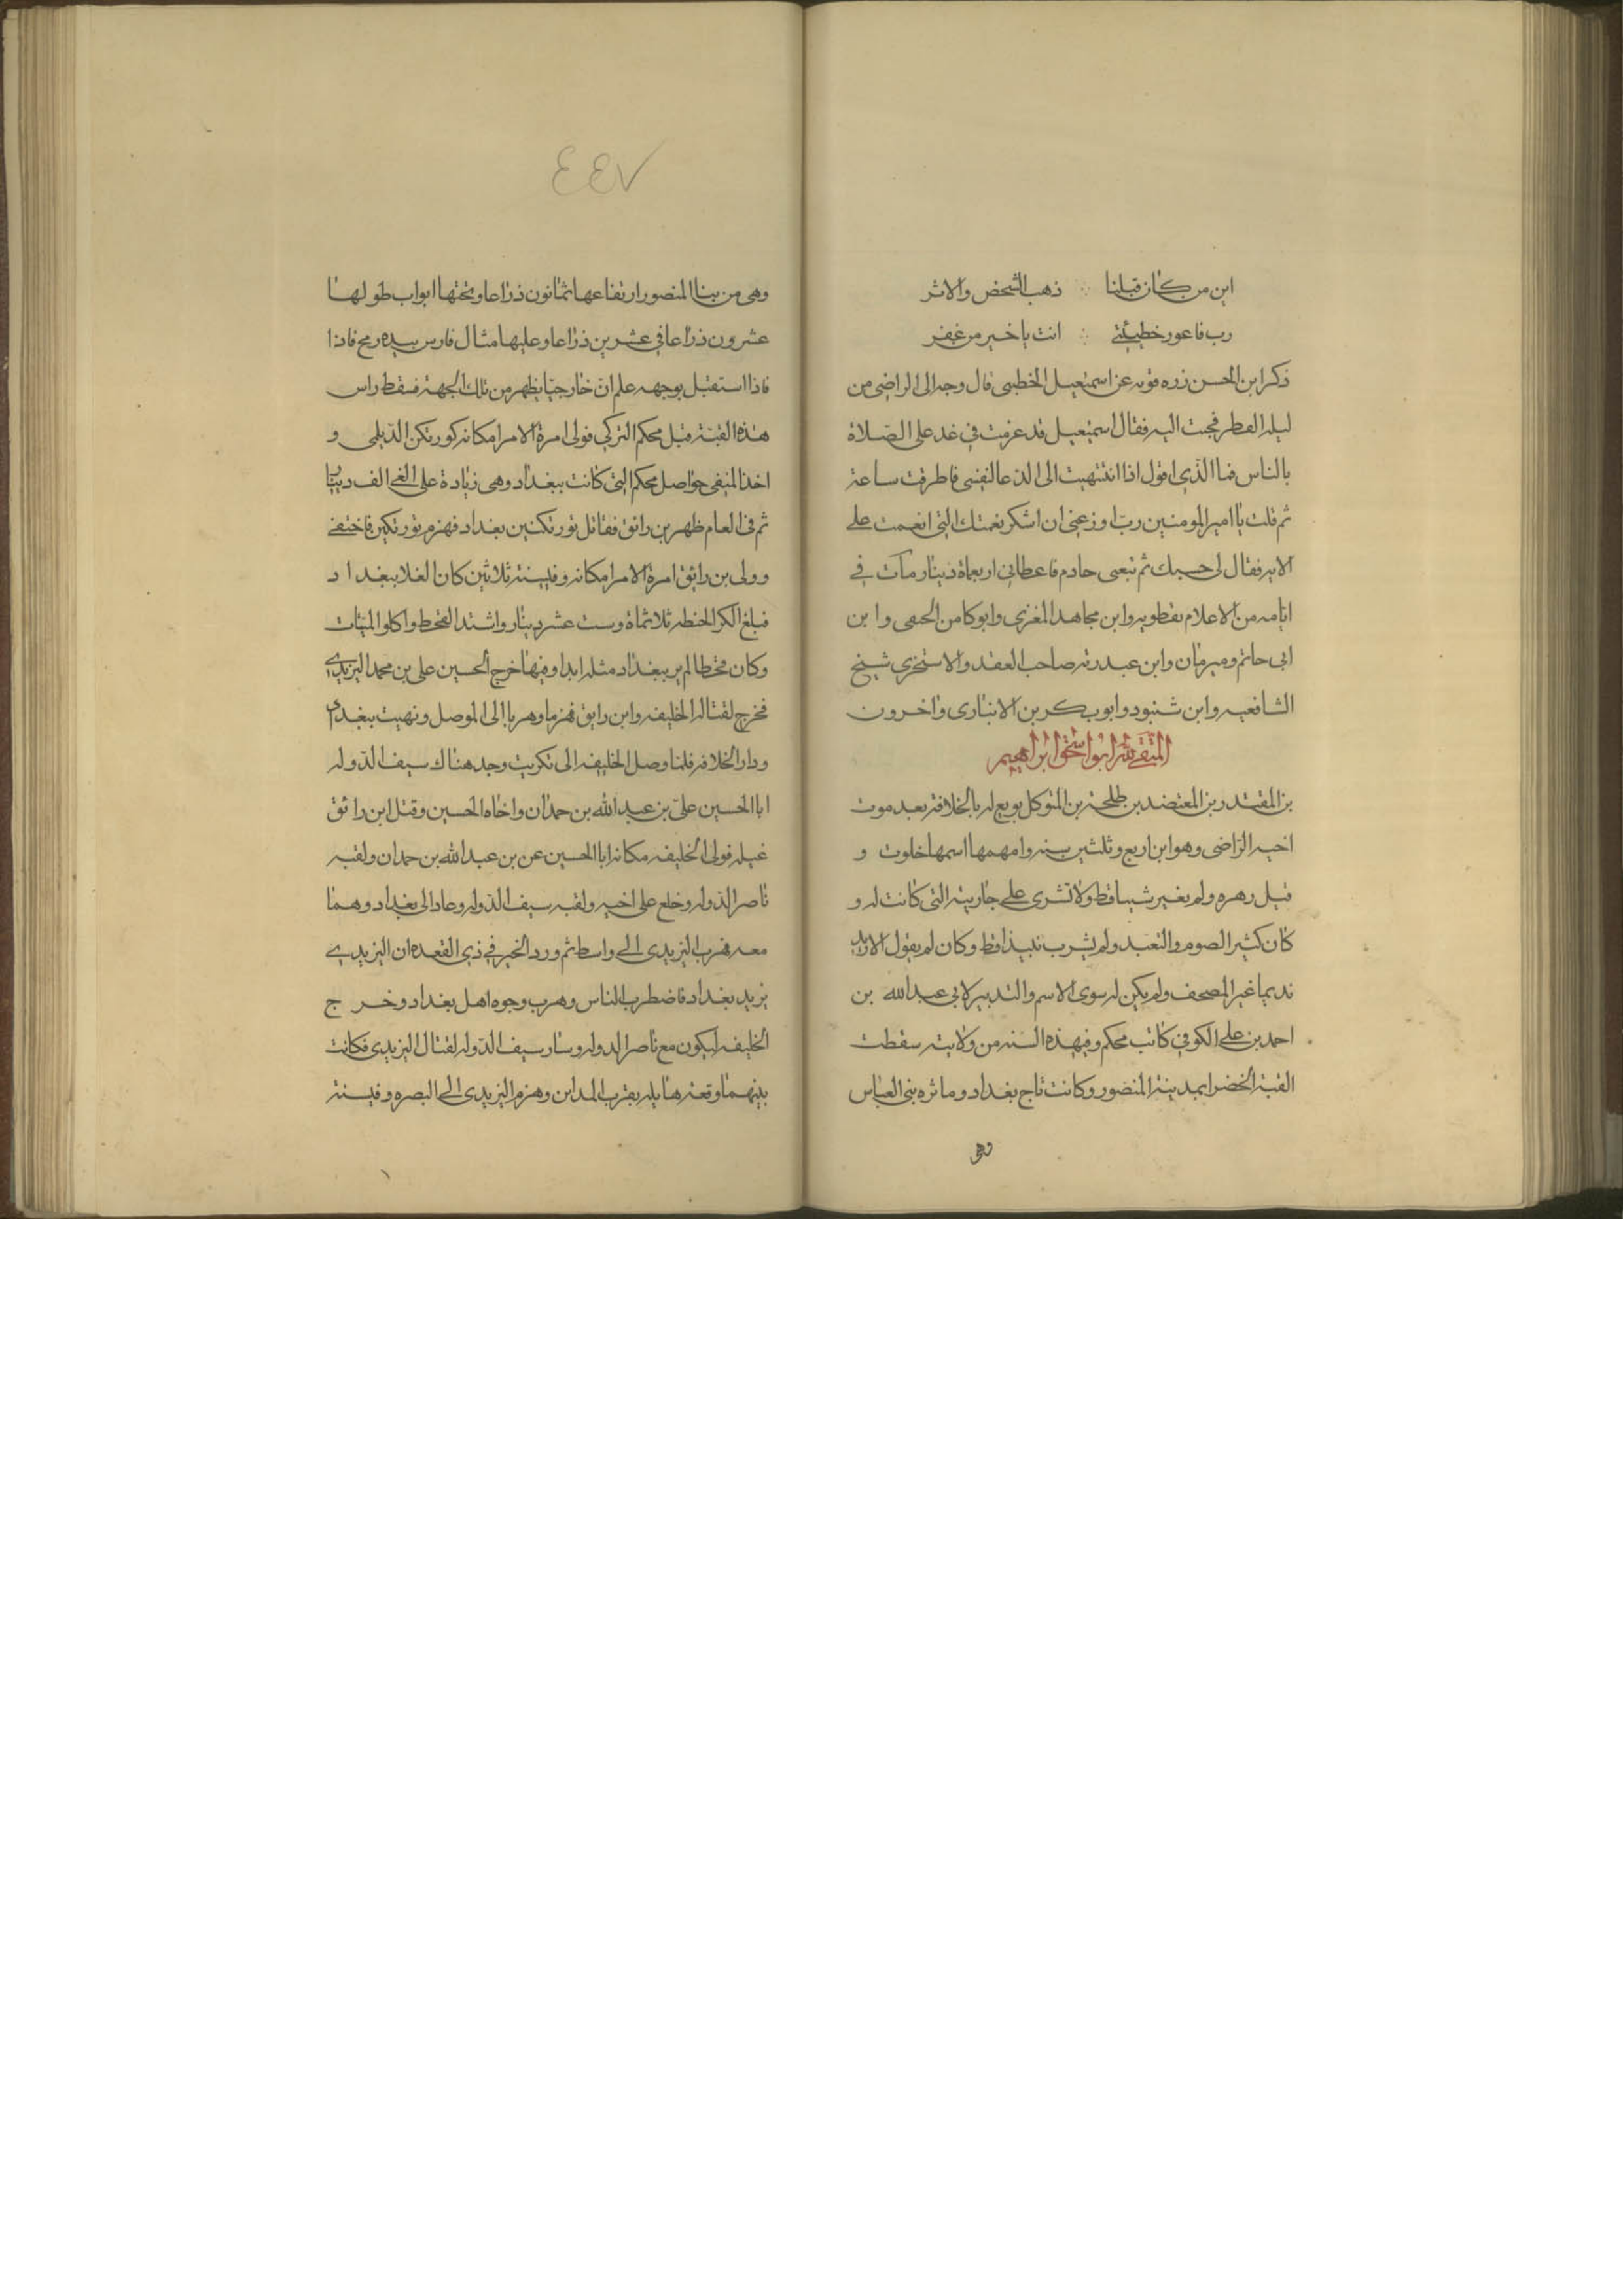 اين من كان قبلنا ∴ ذهب الشخص والاثر
رب فاعور خطيئتي ∴ انت يا خير من غفر
ذكر ابن الحسن زره قويه عن اسمعيل الخطبي قال وجه الى الراضي من
ليله الفطر فجيت اليه فقال اسمعيل قد عزمت في غد على الصلاة
بالناس فما الذي اقول اذا انتهيت الى الدعا لنفسي فاطرقت ساعة
ثم قلت يا امير المومنين رب اوزعني ان اشكر نعمتك التي انعمت علي
الايه فقال لي حسبك ثم تبعني خادم فاعطاني اربعماة دينار مات في
ايامه من الاعلام نفطويه وابن مجاهد المقري وابو كامن الحنفي وابن
ابي حاتم ومبرمان وابن عبد ربه صاحب العقد والاستخري شيخ
الشافعيه وابن شنبود وابو بكر بن الانباري واخرون
المتقي لله ابو اسحق ابراهيم
بن المقتدر بن المعتضد بن طلحة بن المتوكل بويع له بالخلافة بعد موت
اخيه الراضي وهو ابن اربع وثلثين سنه وامه مها اسمها خلوت و
قيل زهره ولم يغير شييا قط ولا تشرى على جاريته التي كانت له و
كان كثير الصوم والتعبد ولم يشرب نبيذا قط وكان لم يقول لا اريد
نديما غير المصحف ولم يكن له سوى الاسم والتدبير لابي عبد الله بن
احمد بن علي الكوفي كاتب محكم وفي هذه السنه من ولايته سقطت
القبة الخضرا بمدينة المنصور وكانت تاج بغداد وماثره بني العباس
وهي
٤٤٧
وهي من بينا المنصور ارتفاعها ثمانون ذراعا وتحتها ابواب طولها
عشرون ذراعا في عشرين ذراعا وعليها مثال فارس بيده رمح فاذا
فاذا استقبل بوجهه علم ان خارجيا يظهر من تلك الجهة فسقط راس
هذه القبة قبل محكم التركي فولى امرة الامرا مكانه كورتكن الديلمي و
اخذ المتقي حواصل محكم التي كانت ببغداد وهي زيادة على الفي الف دينار
ثم في العام ظهر بن رائق فقاتل تورتكين ببغداد فهزم تورتكين فاختفى
وولى بن رايق امرة الامرا مكانه وفي سنة ثلاثين كان الغلا ببغداد
فبلغ الكر الحنطه ثلاثماة وست عشر دينار واشتد القحط واكلوا الميتات
وكان قحطا لم ير ببغداد مثله ابدا وفيها خرج الحسين علي بن محمد اليزيدي
فخرج لقتاله الخليفه وابن رايق فهزما وهربا الى الموصل ونهبت بغداد
ودار الخلافة فلما وصل الخليفه الى تكريت وجد هناك سيف الدوله
ابا الحسين علي بن عبد الله بن حمدان واخاه الحسين وقتل ابن رائق
غيله فولى الخليفه مكانه ابا الحسين عن بن عبد الله بن حمدان ولقبه
ناصر الدوله وخلع على اخيه ولقبه سيف الدوله وعاد الى بغداد وهما
معه فهرب اليزيدي الى واسط ثم ورد الخبر في ذي القعده ان اليزيدي
يريد بغداد فاضطرب الناس وهرب وجوه اهل بغداد وخرج
الخليفه ليكون مع ناصر الدوله وسار سيف الدوله لقتال اليزيدي فكانت
بينهما وقعة هايله بقرب المداين وهزم اليزيدي الى البصره وفي سنة